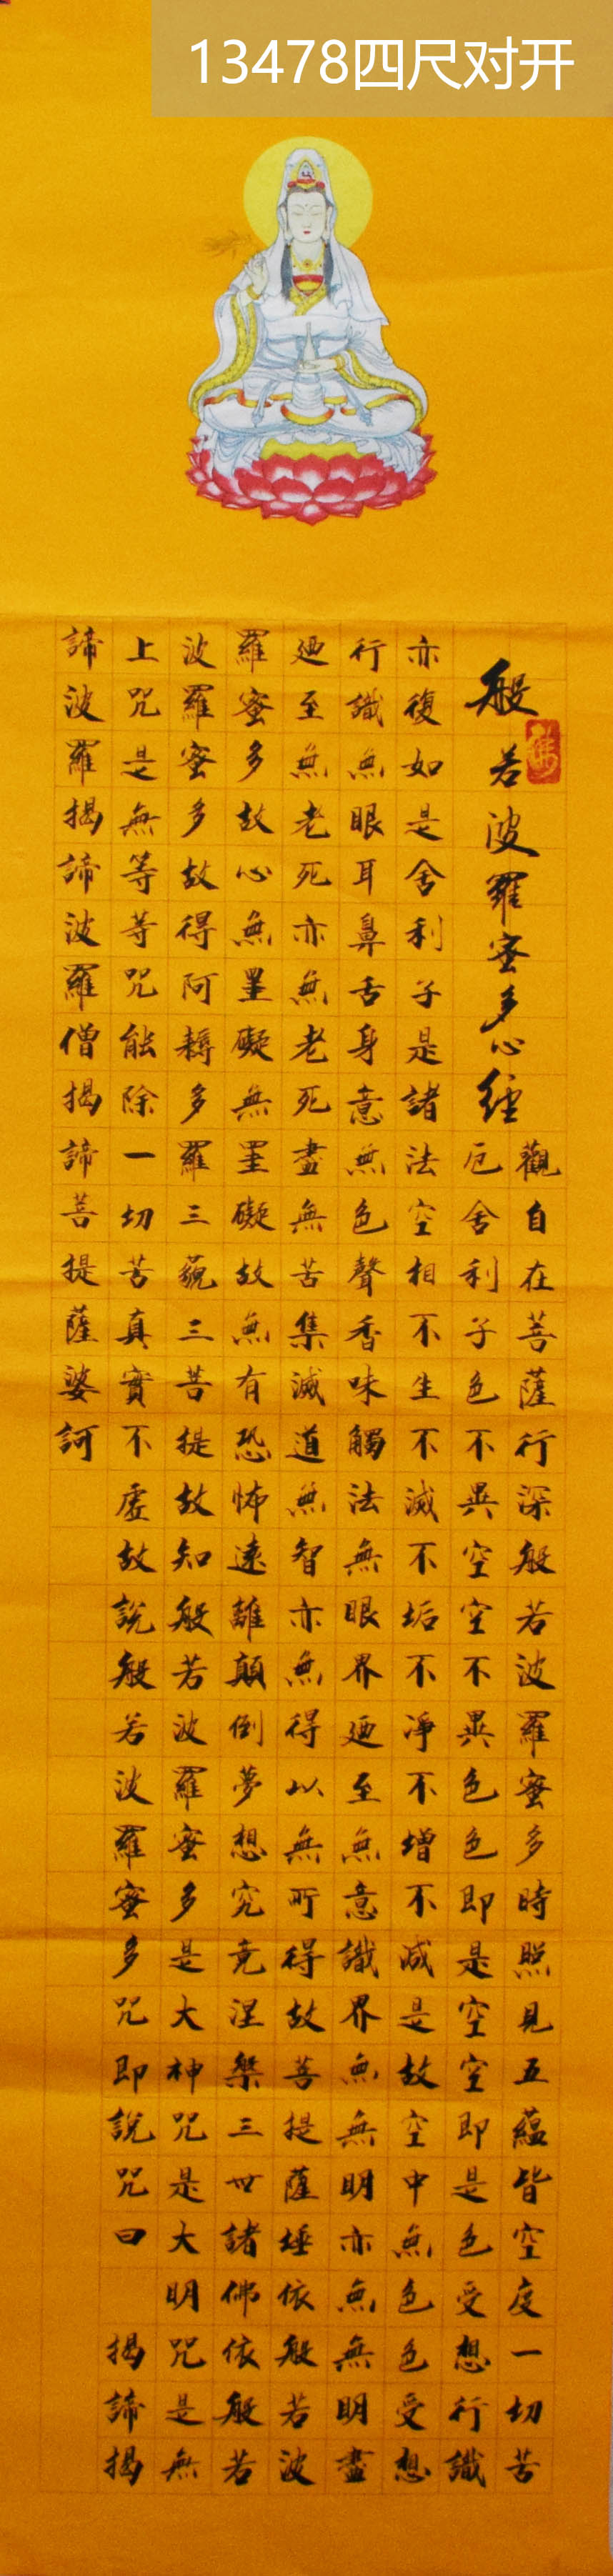 13478四尺对开
般若波羅蜜多心經
佛
觀自在菩薩行深般若波羅蜜多時照見五蘊皆空度一切苦
厄舍利子色不異空空不異色色即是空空即是色受想行識
亦復如是舍利子是諸法空相不生不滅不垢不淨不增不減是故空中無色色受想
行識無眼耳鼻舌身意無色聲香味觸法無眼界廼至無意識界無無明亦無無明盡
廼至無老死亦無老死盡無苦集滅道無智亦無得以無所得故菩提薩埵依般若波
羅蜜多故心無罣礙無罣礙故無有恐怖遠離顛倒夢想究竟涅槃三世諸佛依般若
波羅蜜多故得阿耨多羅三藐三菩提故知般若波羅蜜多是大神咒是大明咒是無
上咒是無等等咒能除一切苦真實不虛故說般若波羅蜜多咒即說咒曰 揭諦揭
諦波羅揭諦波羅僧揭諦菩提薩婆訶